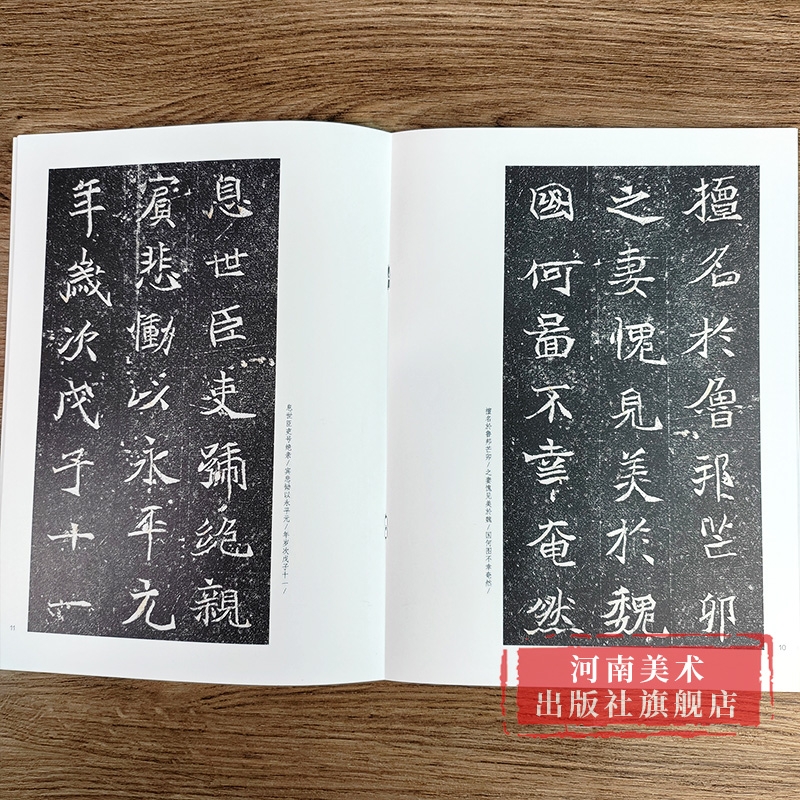 擅名於魯邦芒卯
之妻愧見美於魏
國何啚不幸奄然
擅名於鲁邦芒卯/之妻愧见美於魏/国何图不幸奄然/
10
息世臣吏號絶親
賓悲慟以永平元
年歲次戊子十一
息世臣吏号绝亲/宾悲恸以永平元/年岁次戊子十一/
11
河南美术
出版社旗舰店